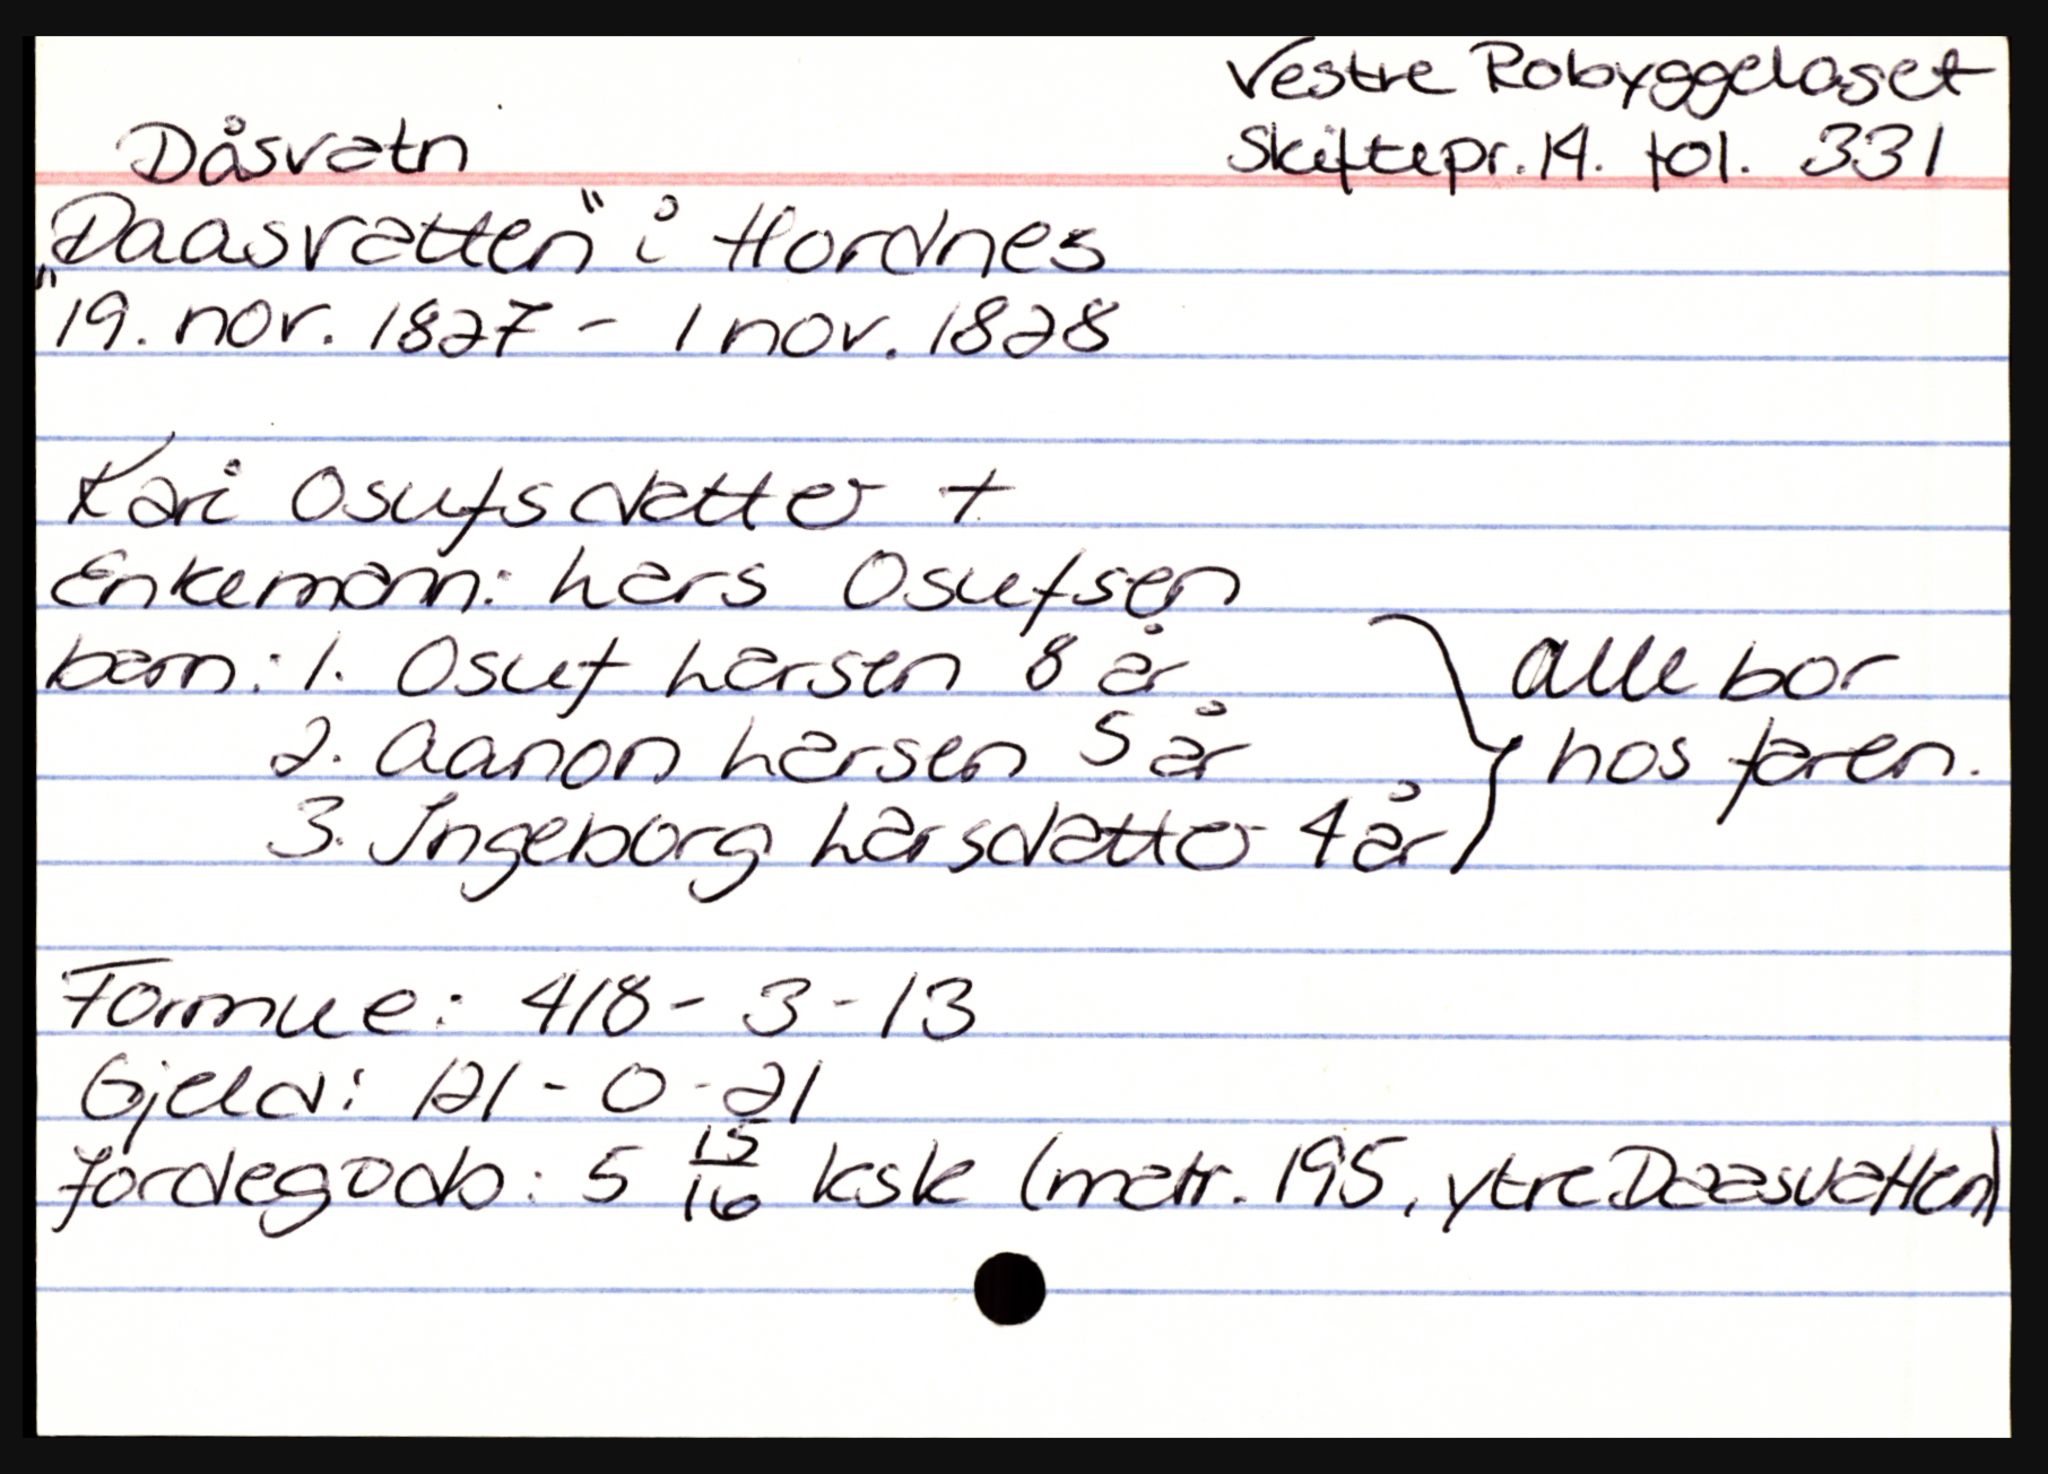 Vestre Robyggelaget
Dåsvatn Skiftepr. 14. fol. 331
"Daasvatten" i Hordnes
19. nov. 1827 - 1 nov. 1828
Kari Osufsdatter +
Enkemann: Lars Osufsen
barn: 1. Osuf Larsen 8 år
2. Aanon Larsen 5 år
3. Ingeborg Larsdatter 4 år
} alle bor
hos faren.
Formue: 418 - 3 - 13
Gjeld: 121 - 0 - 21
Jordegods: 5 15/16 ksk (matr. 195, ytre Daasvatten)